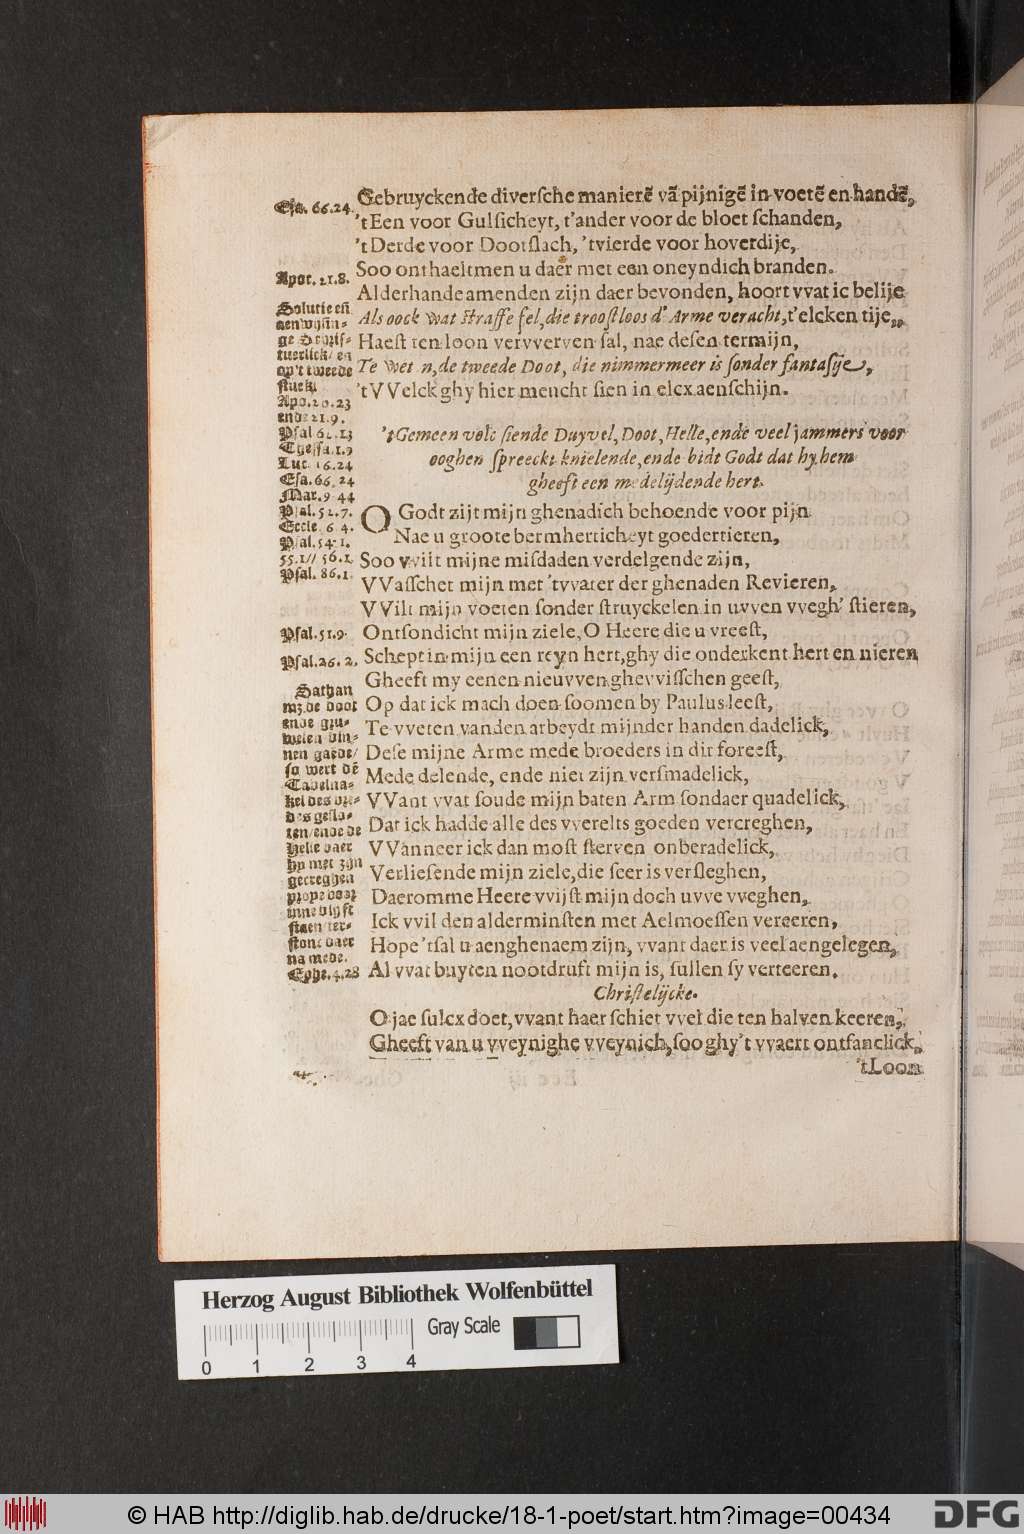 Gebruyckende diversche manierē vā pijnigē in voetē en handē,
't Een voor Gulsicheyt, t'ander voor de bloet schanden,
't Derde voor Dootslach, 'tvierde voor hoverdije,
Soo onthaeltmen u daer met een oneyndich branden.
Alderhande amenden zijn daer bevonden, hoort vvat ic belije
Als oock wat straffe fel, die troostloos d'Arme veracht, t'elcken tije,
Haest ten loon vervverven sal, nae desen termijn,
Te wet n, de tweede Doot, die nimmermeer is sonder fantasije,
't VVelck ghy hier meucht sien in elcx aenschijn.
't Gemeen volc siende Duyvel, Doot, Helle, ende veel jammers voor
ooghen spreeckt knielende, ende bidt Godt dat hy hem
gheeft een medelijdende hert.
O Godt zijt mijn ghenadich behoende voor pijn
Nae u groote bermherticheyt goedertieren,
Soo vvilt mijne misdaden verdelgende zijn,
VVasschet mijn met 'tvvater der ghenaden Revieren,
VVilt mijn voeten sonder struyckelen in uvven vvegh' stieren,
Ontsondicht mijn ziele, O Heere die u vreest,
Schept in mijn een reyn hert, ghy die onderkent hert en nieren
Gheeft my eenen nieuvven ghevvisschen geest,
Op dat ick mach doen soomen by Paulus leest,
Te vveten vanden arbeydt mijnder handen dadelick,
Dese mijne Arme mede broeders in dit foreest,
Mede delende, ende niet zijn versmadelick,
VVant vvat soude mijn baten Arm sondaer quadelick,
Dat ick hadde alle des vverelts goeden vercreghen,
VVanneer ick dan most sterven onberadelick,
Verliesende mijn ziele, die seer is versleghen,
Daeromme Heere vvijst mijn doch uvve vveghen,
Ick vvil den alderminsten met Aelmoessen vereeren,
Hope 'tsal u aenghenaem zijn, vvant daer is veel aengelegen,
Al vvat buyten nootdruft mijn is, sullen sy verteeren.
Christelijcke.
O jae sulcx doet, vvant haer schiet vvel die ten halven keeren,
Gheeft van u vveynighe vveynich, soo ghy't vvaert ontfanclick,
't Loon
Esa. 66.24.
Apoc. 21.8.
Solutie eñ
aenwijsin-
ge Schrif-
tuerlick/ en
op't tweede
stuck.
Apo. 20. 23
ende 21. 9.
Psal 62. 13
Thessa. 1. 9
Luc. 16. 24
Esa. 66, 24
Mar. 9 44
Psal. 52. 7.
Eccle. 6 4.
Psal. 54. 1.
55. 1// 56. 1
Psal. 86. 1.
Psal. 51. 9.
Psal. 26. 2.
Sathan
mz. de doot
ende gru-
welen bin-
nen gaede/
so wert dē
Tabelna-
kel des vre-
des geslo-
ten/ ende de
Helle daer
hy met zijn
gecreghen
prope daer
inne blijft
staen ter-
stont daer
na mede.
Ephe. 4. 28
Herzog August Bibliothek Wolfenbüttel
Gray Scale
0 1 2 3 4
© HAB http://diglib.hab.de/drucke/18-1-poet/start.htm?image=00434
DFG